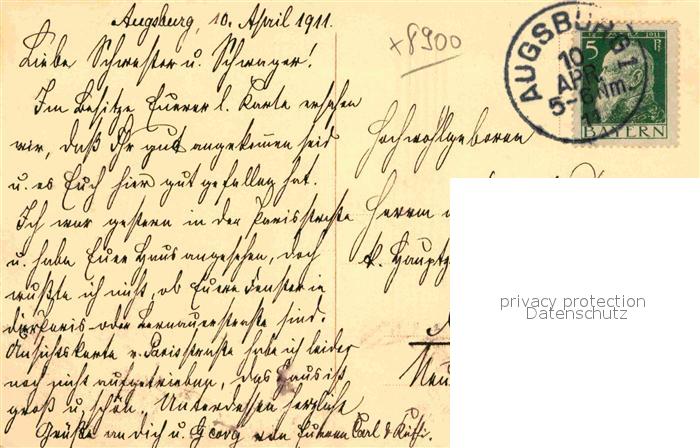 Augsburg, 10. April 1911.
Liebe Schwester u. Schwager!
Im Besitze Euerer l. Karte ersehen
wir, daß Ihr gut angekommen seid
u. es Euch hier gut gefallen hat.
Ich war gestern in der Parisstraße
u. habe Euer Haus angesehen, doch
wußte ich nicht, ob Euere Fenster in
der Paris- oder Lernauerstraße sind.
Ansichtskarte v. Parisstraße habe ich leider
noch nicht aufgetrieben, das Haus ist
groß u. schön. Unterdessen herzliche
Grüße an Dich u. Georg von Euerem Carl &
+8900
AUGSBURG 1
10
APR
5-6 Nm.
11
5 Pf
1911
BAYERN
Hochwohlgeboren
Herrn
k. Hauptz
Neu
privacy protection
Datenschutz